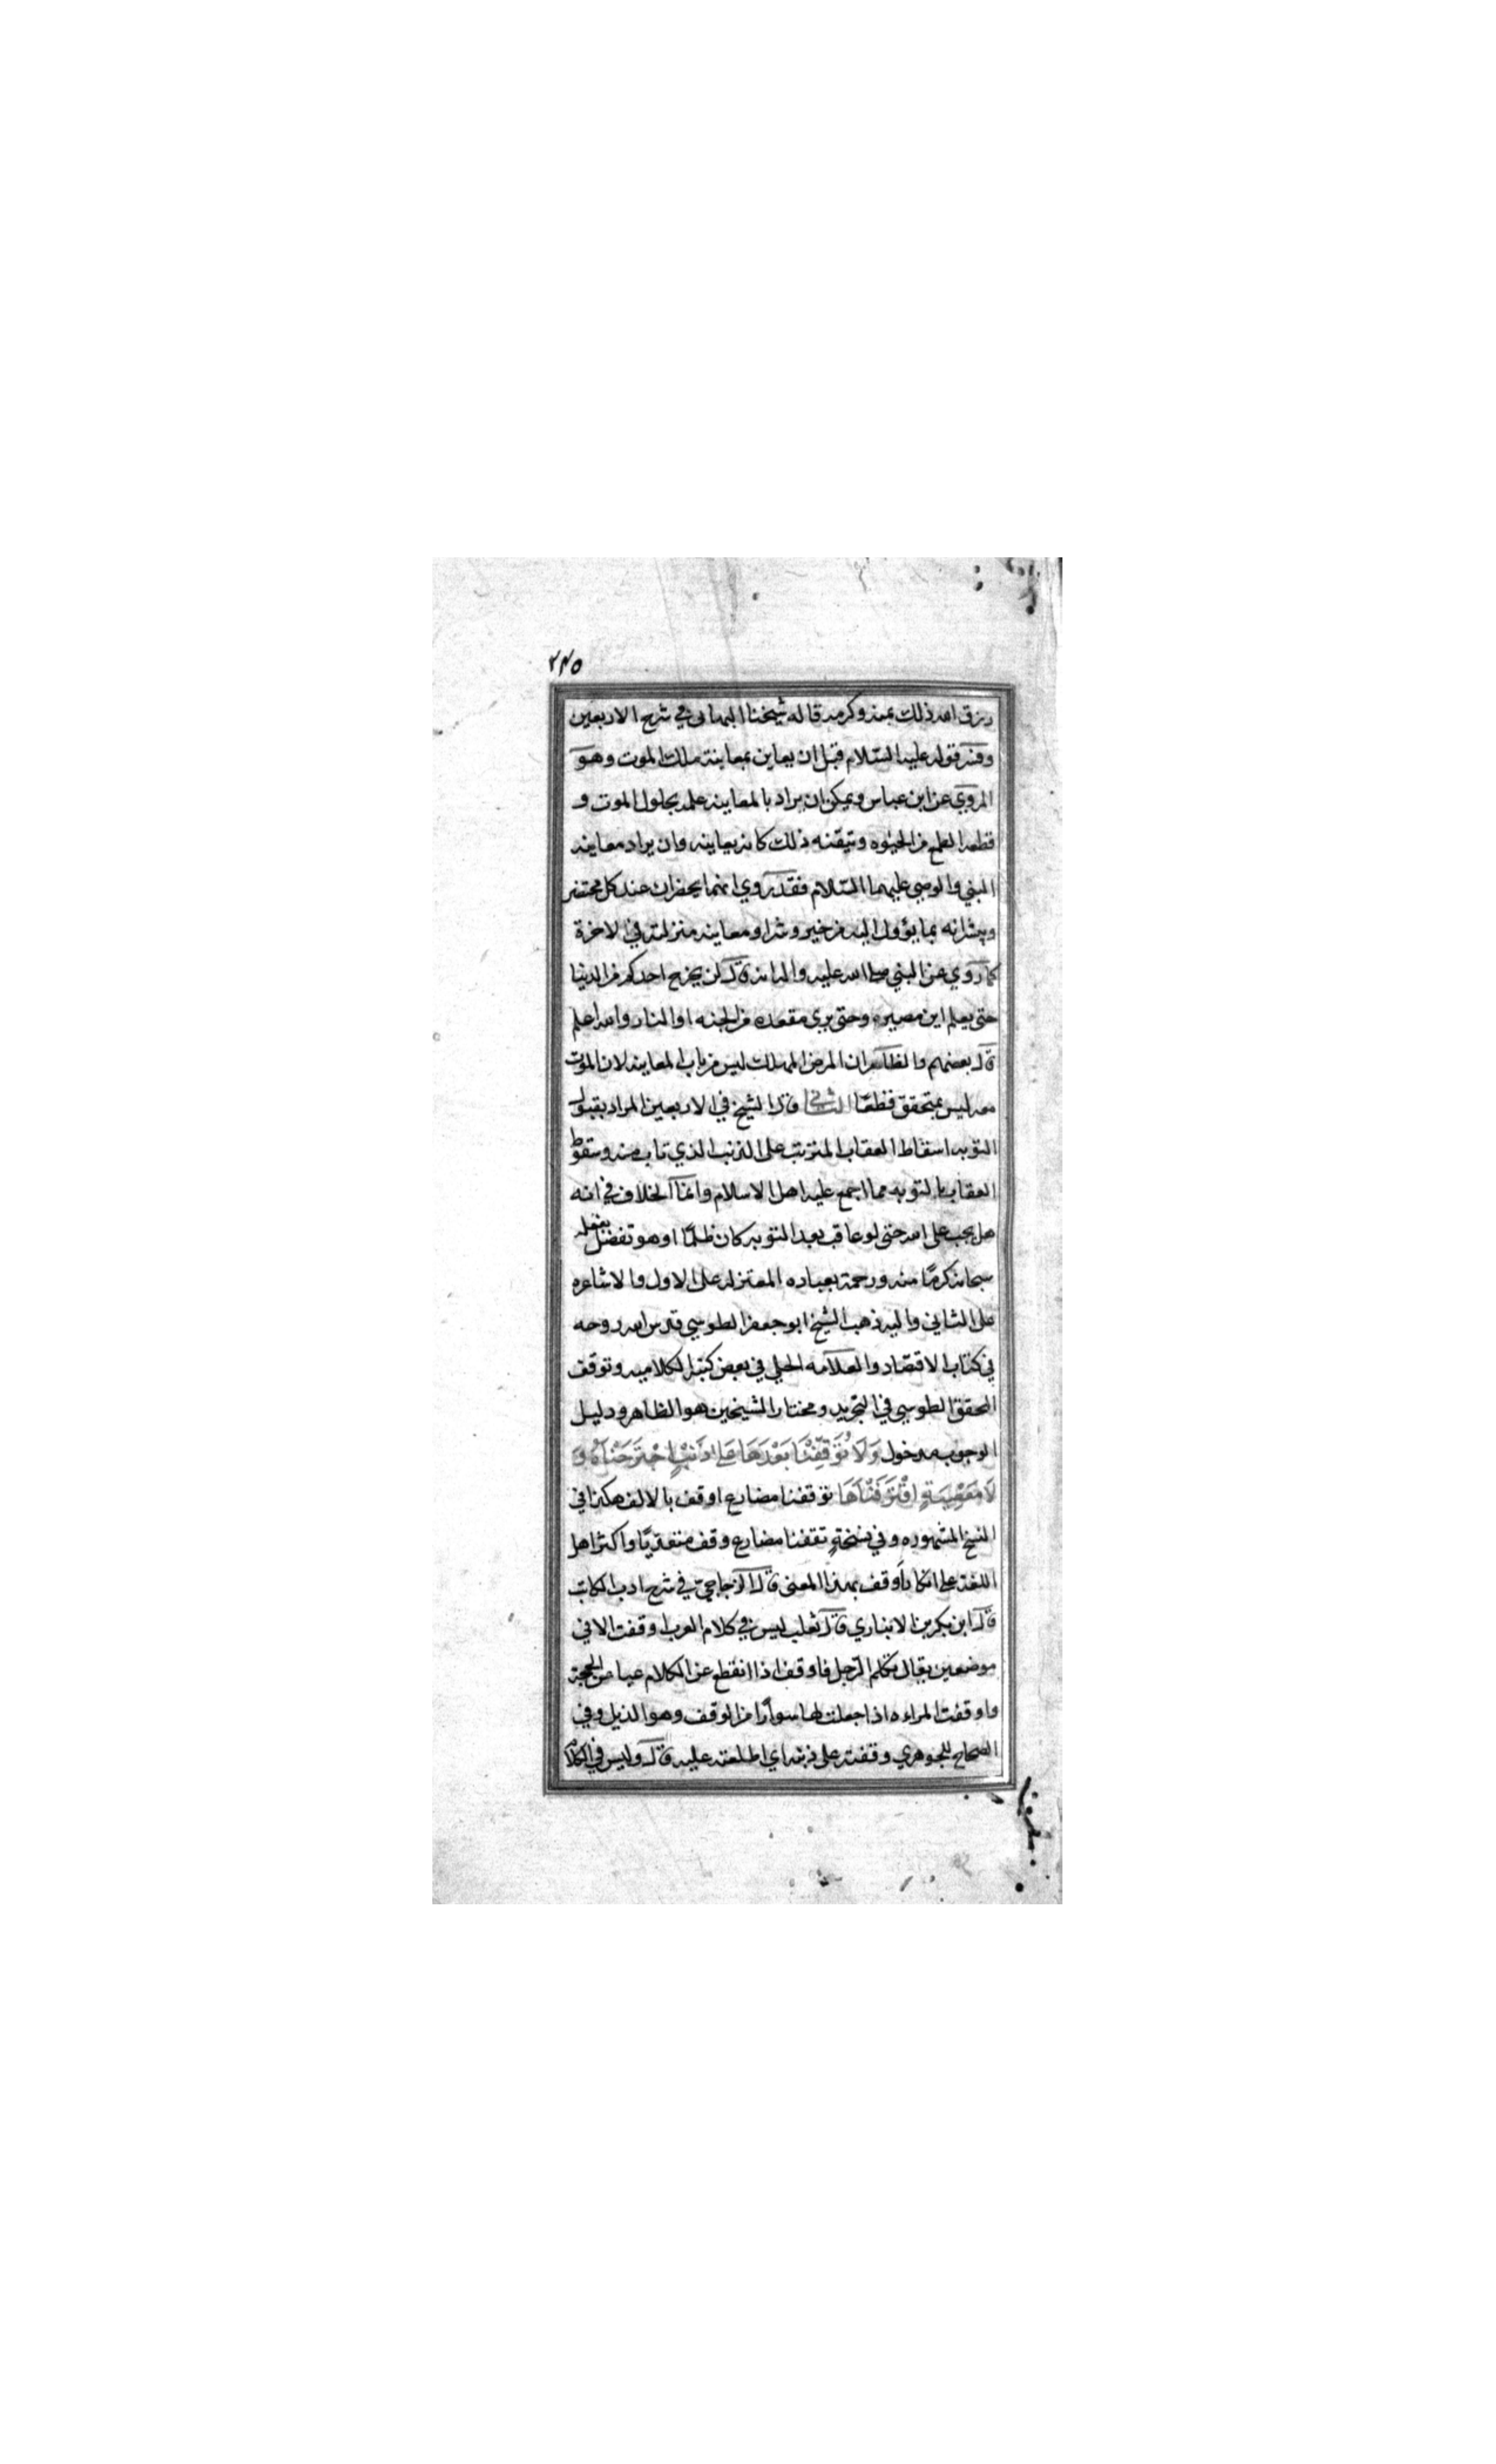 ٢٤٥
رزق الله ذلك بمنه وكرمه قاله شيخنا البهائى في شرح الاربعين
وفسر قوله عليه السّلام قبل ان يعاين بمعاينة ملك الموت وهو
المروي عن ابن عباس ويمكن ان يراد بالمعاينه علمه بحلول الموت و
قطعه الطمع من الحيوه وتيقنه ذلك كانه يعاينه وان يراد معاينه
النبي والوصي عليهما السّلام فقد روي انهما يحضران عند كل محتضر
ويبشرانه بما يؤول اليه من خير وشر او معاينه منزلته في الاخرة
كما روي عن النبي صلى الله عليه واله انه قال لن يخرج احدكم من الدنيا
حتى يعلم اين مصيره وحتى يرى مقعده من الجنه او النار والله اعلم
قال بعضهم والظاهر ان المرض المهلك ليس من باب المعاينه لان الموت
معه ليس بمتحقق قطعًا الثاني قال الشيخ في الاربعين المراد بقبول
التوبه اسقاط العقاب المترتب على الذنب الذي تاب منه وسقوط
العقاب بالتوبه مما اجمع عليه اهل الاسلام وانما الخلاف في انه
هل يجب على الله حتى لو عاقب بعد التوبه كان ظلمًا او هو تفضل بفعله
سبحانه كرمًا منه ورحمة بعباده المعتزله على الاول والاشاعره
على الثاني واليه ذهب الشيخ ابو جعفر الطوسي قدس الله روحه
في كتاب الاقتصاد والعلامه الحلي في بعض كتبه الكلاميه وتوقف
المحقق الطوسي في التجريد ومختار الشيخين هو الظاهر ودليل
الوجوب مدخول وَلَا تُوَقِفْنَا بَعْدَهَا عَلى ذَنْبٍ اجْتَرَحْنَاهُ وَ
لَا مَعْصِيَةٍ اقْتَرَفْنَاهَا توقفنا مضارع اوقف بالالف هكذا في
النسخ المشهوره وفي نسخةٍ تقفنا مضارع وقف متعديًا واكثر اهل
اللغة على انكار أوقف بهذا المعنى قال الزجاجيّ في شرح ادب الكاتب
قال ابن بكر بن الانباري قال ثعلب ليس في كلام العرب اوقفت الا في
موضعين يقال تكلم الرّجل فاوقف اذا انقطع عن الكلام عيا عن الحجة
واوقفت المراءه اذا جعلت لها سوارًا من الوقف وهو الذبل وفي
الصحاح للجوهري وقفته على ذنبه اي اطلعته عليه قال وليس في الكلام